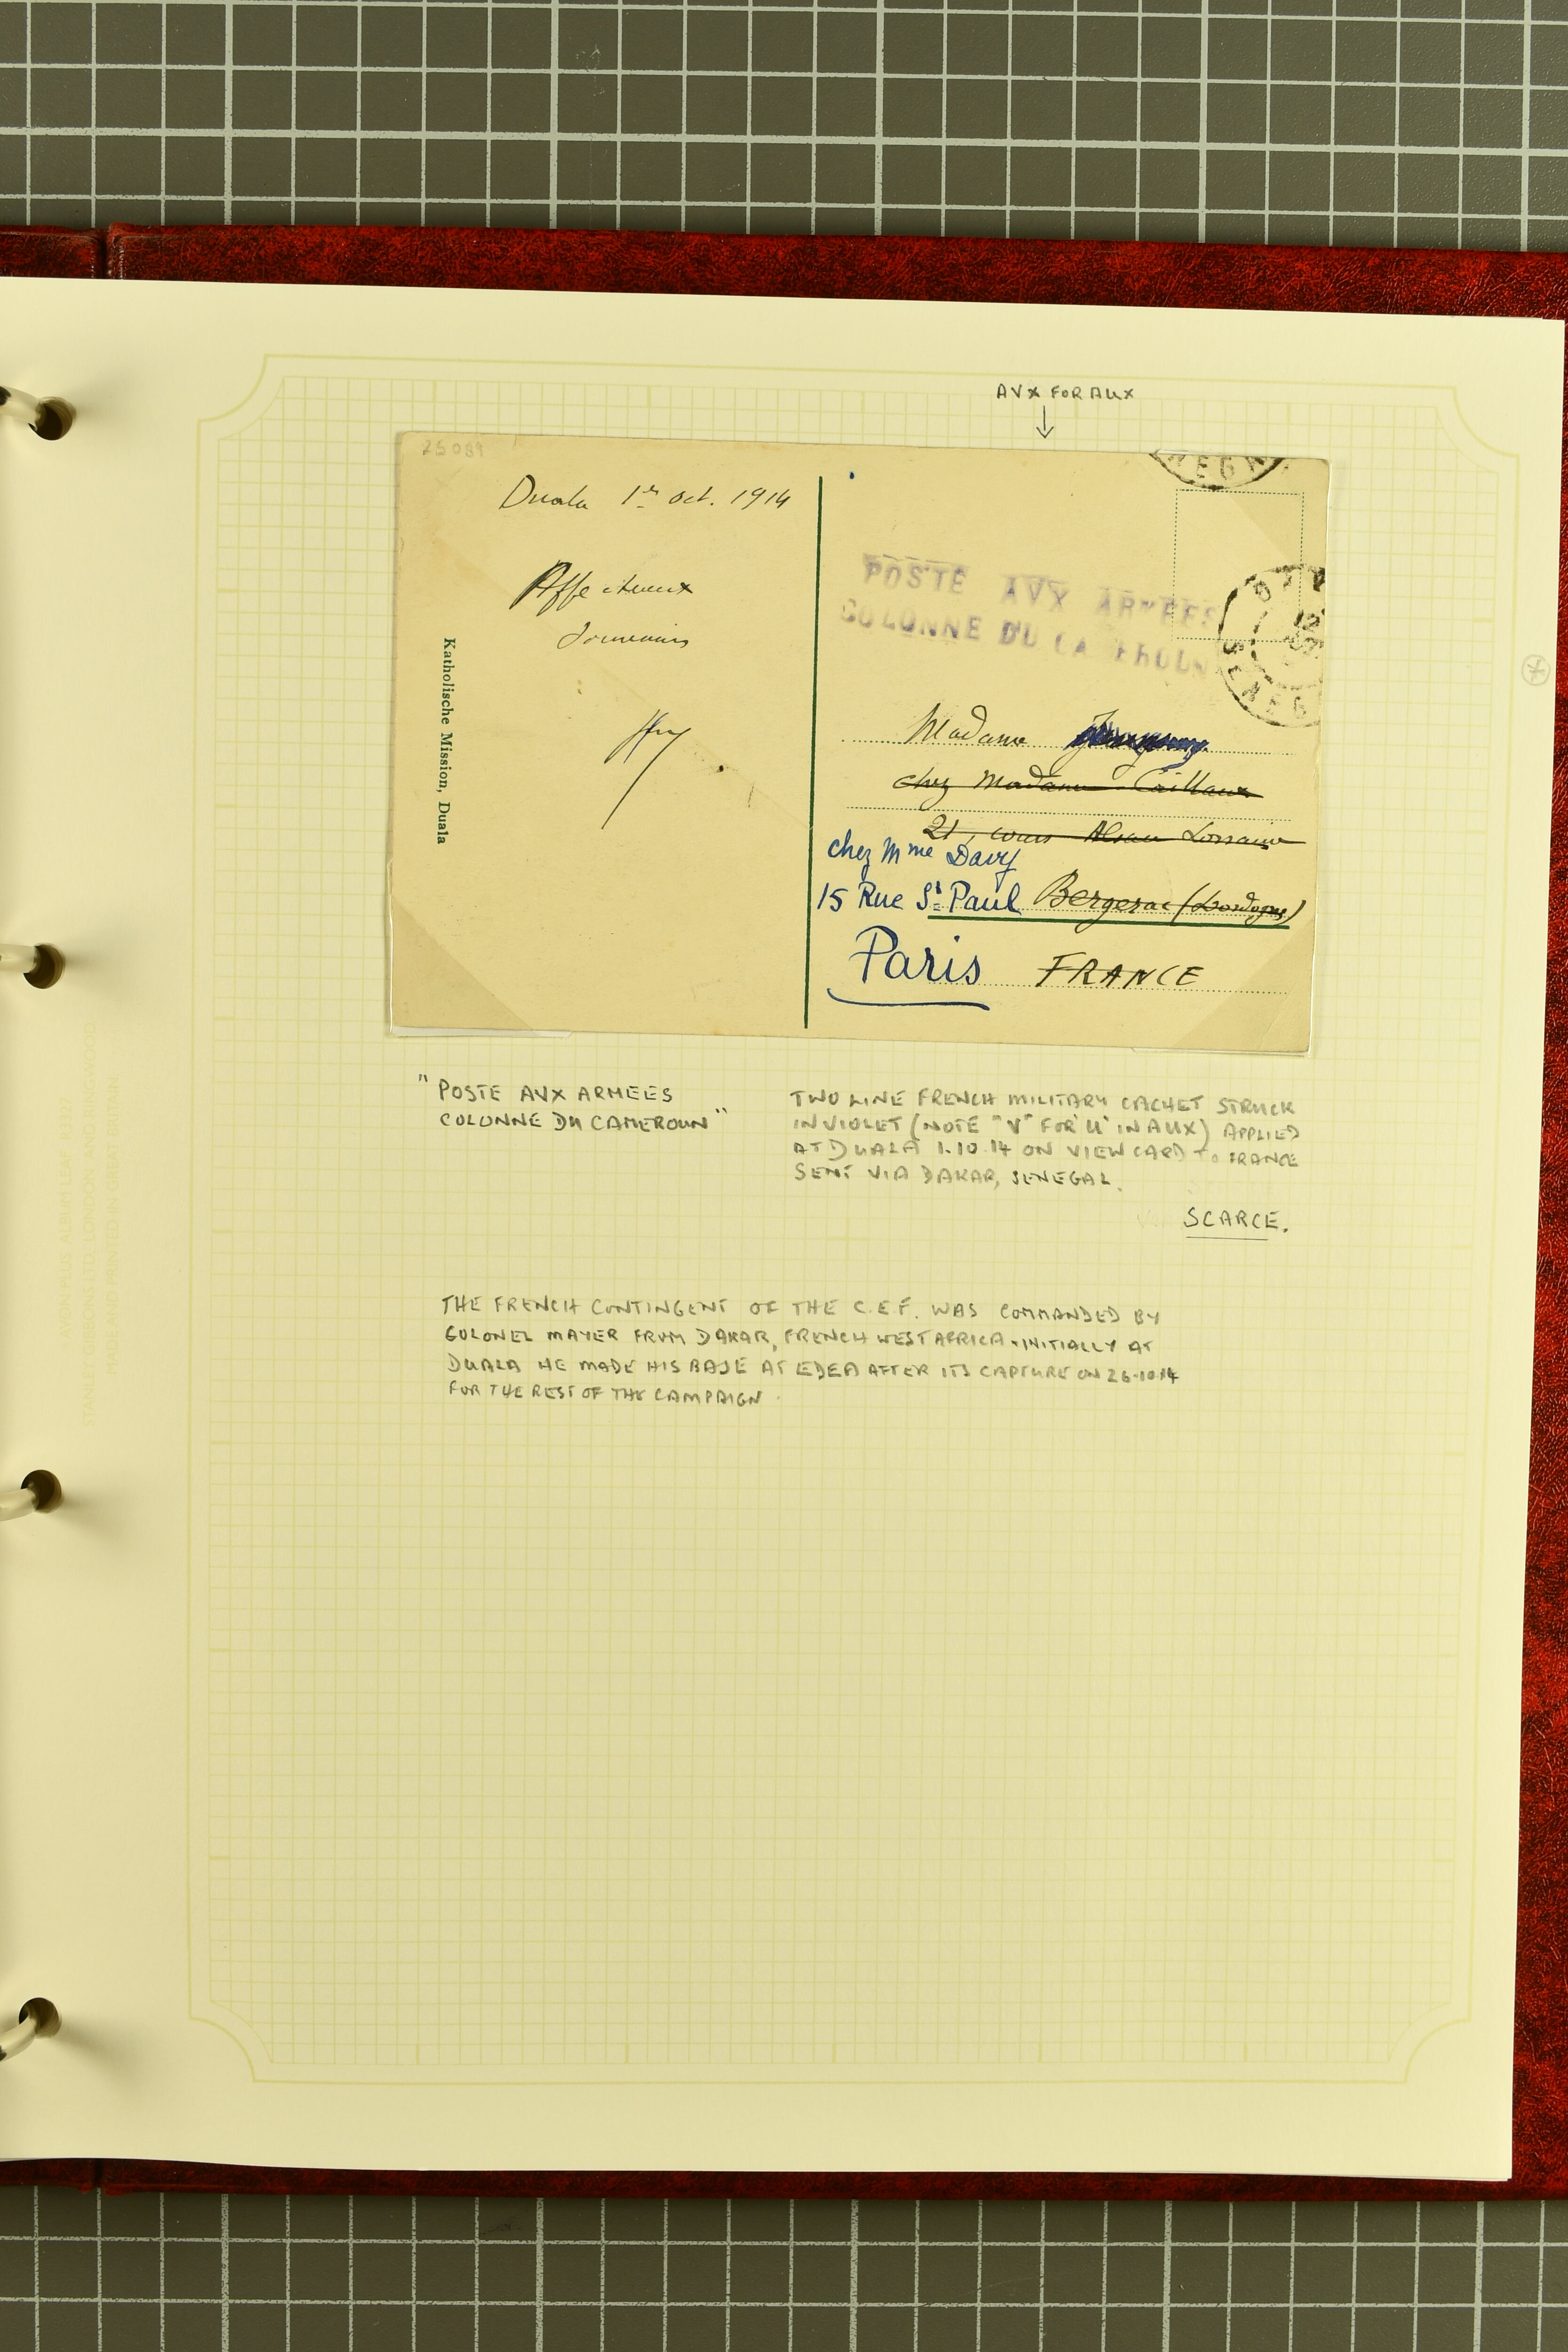 AVX FOR AUX
25089
Duala 1er oct. 1914
Affectueux
Souvenirs
Katholische Mission, Duala
POSTE AVX ARMEES
COLONNE DU CAMEROUN
SENEG
Madame
chez Madame Caillaux
21, cours Alsace Lorraine
chez Mme Davy
15 Rue St Paul Bergerac (Dordogne)
Paris FRANCE
"POSTE AVX ARMEES
COLONNE DU CAMEROUN"
TWO LINE FRENCH MILITARY CACHET STRUCK
IN VIOLET (NOTE "V" FOR 'U' IN AUX) APPLIED
AT DUALA 1.10.14 ON VIEW CARD TO FRANCE
SENT VIA DAKAR, SENEGAL.
SCARCE.
THE FRENCH CONTINGENT OF THE C.E.F. WAS COMMANDED BY
COLONEL MAYER FROM DAKAR, FRENCH WEST AFRICA. INITIALLY AT
DUALA HE MADE HIS BASE AT EDEA AFTER ITS CAPTURE ON 26.10.14
FOR THE REST OF THE CAMPAIGN